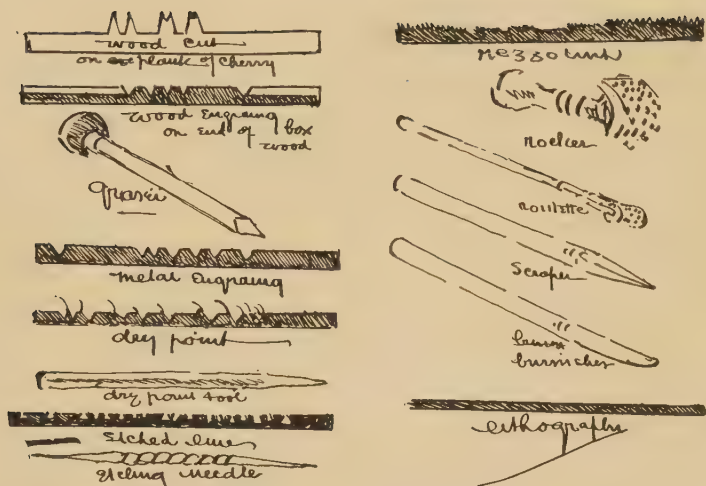 wood cut
on plank of cherry
wood Engraving
on End of box
wood
graver
metal Engraving
dry point
dry point tool
Etched line
Etching Needle
Mezzotint
Rocker
roulette
Scraper
burnisher
lithography